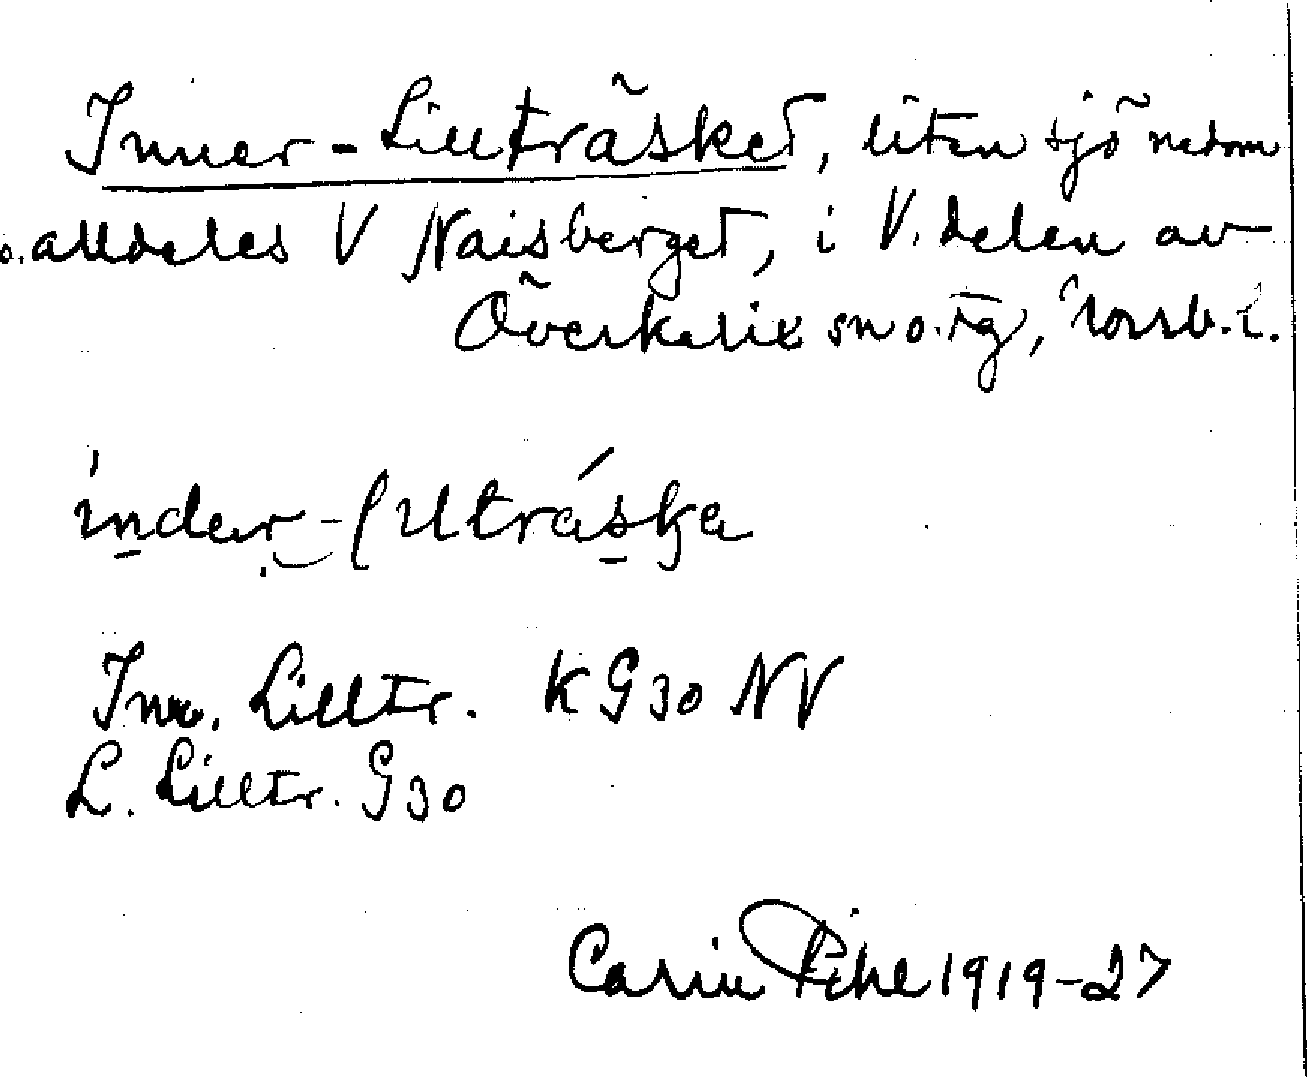 Inner-Lillträsket, liten sjö nedom
o. alldeles V Naisberget, i V. delen av
Överkalix sn o. tg, Norrb. l.
índar-lílltráska
Inr. Lilltr. K G30 NV
L. Lilltr. G30
Carin Pihl 1919-27